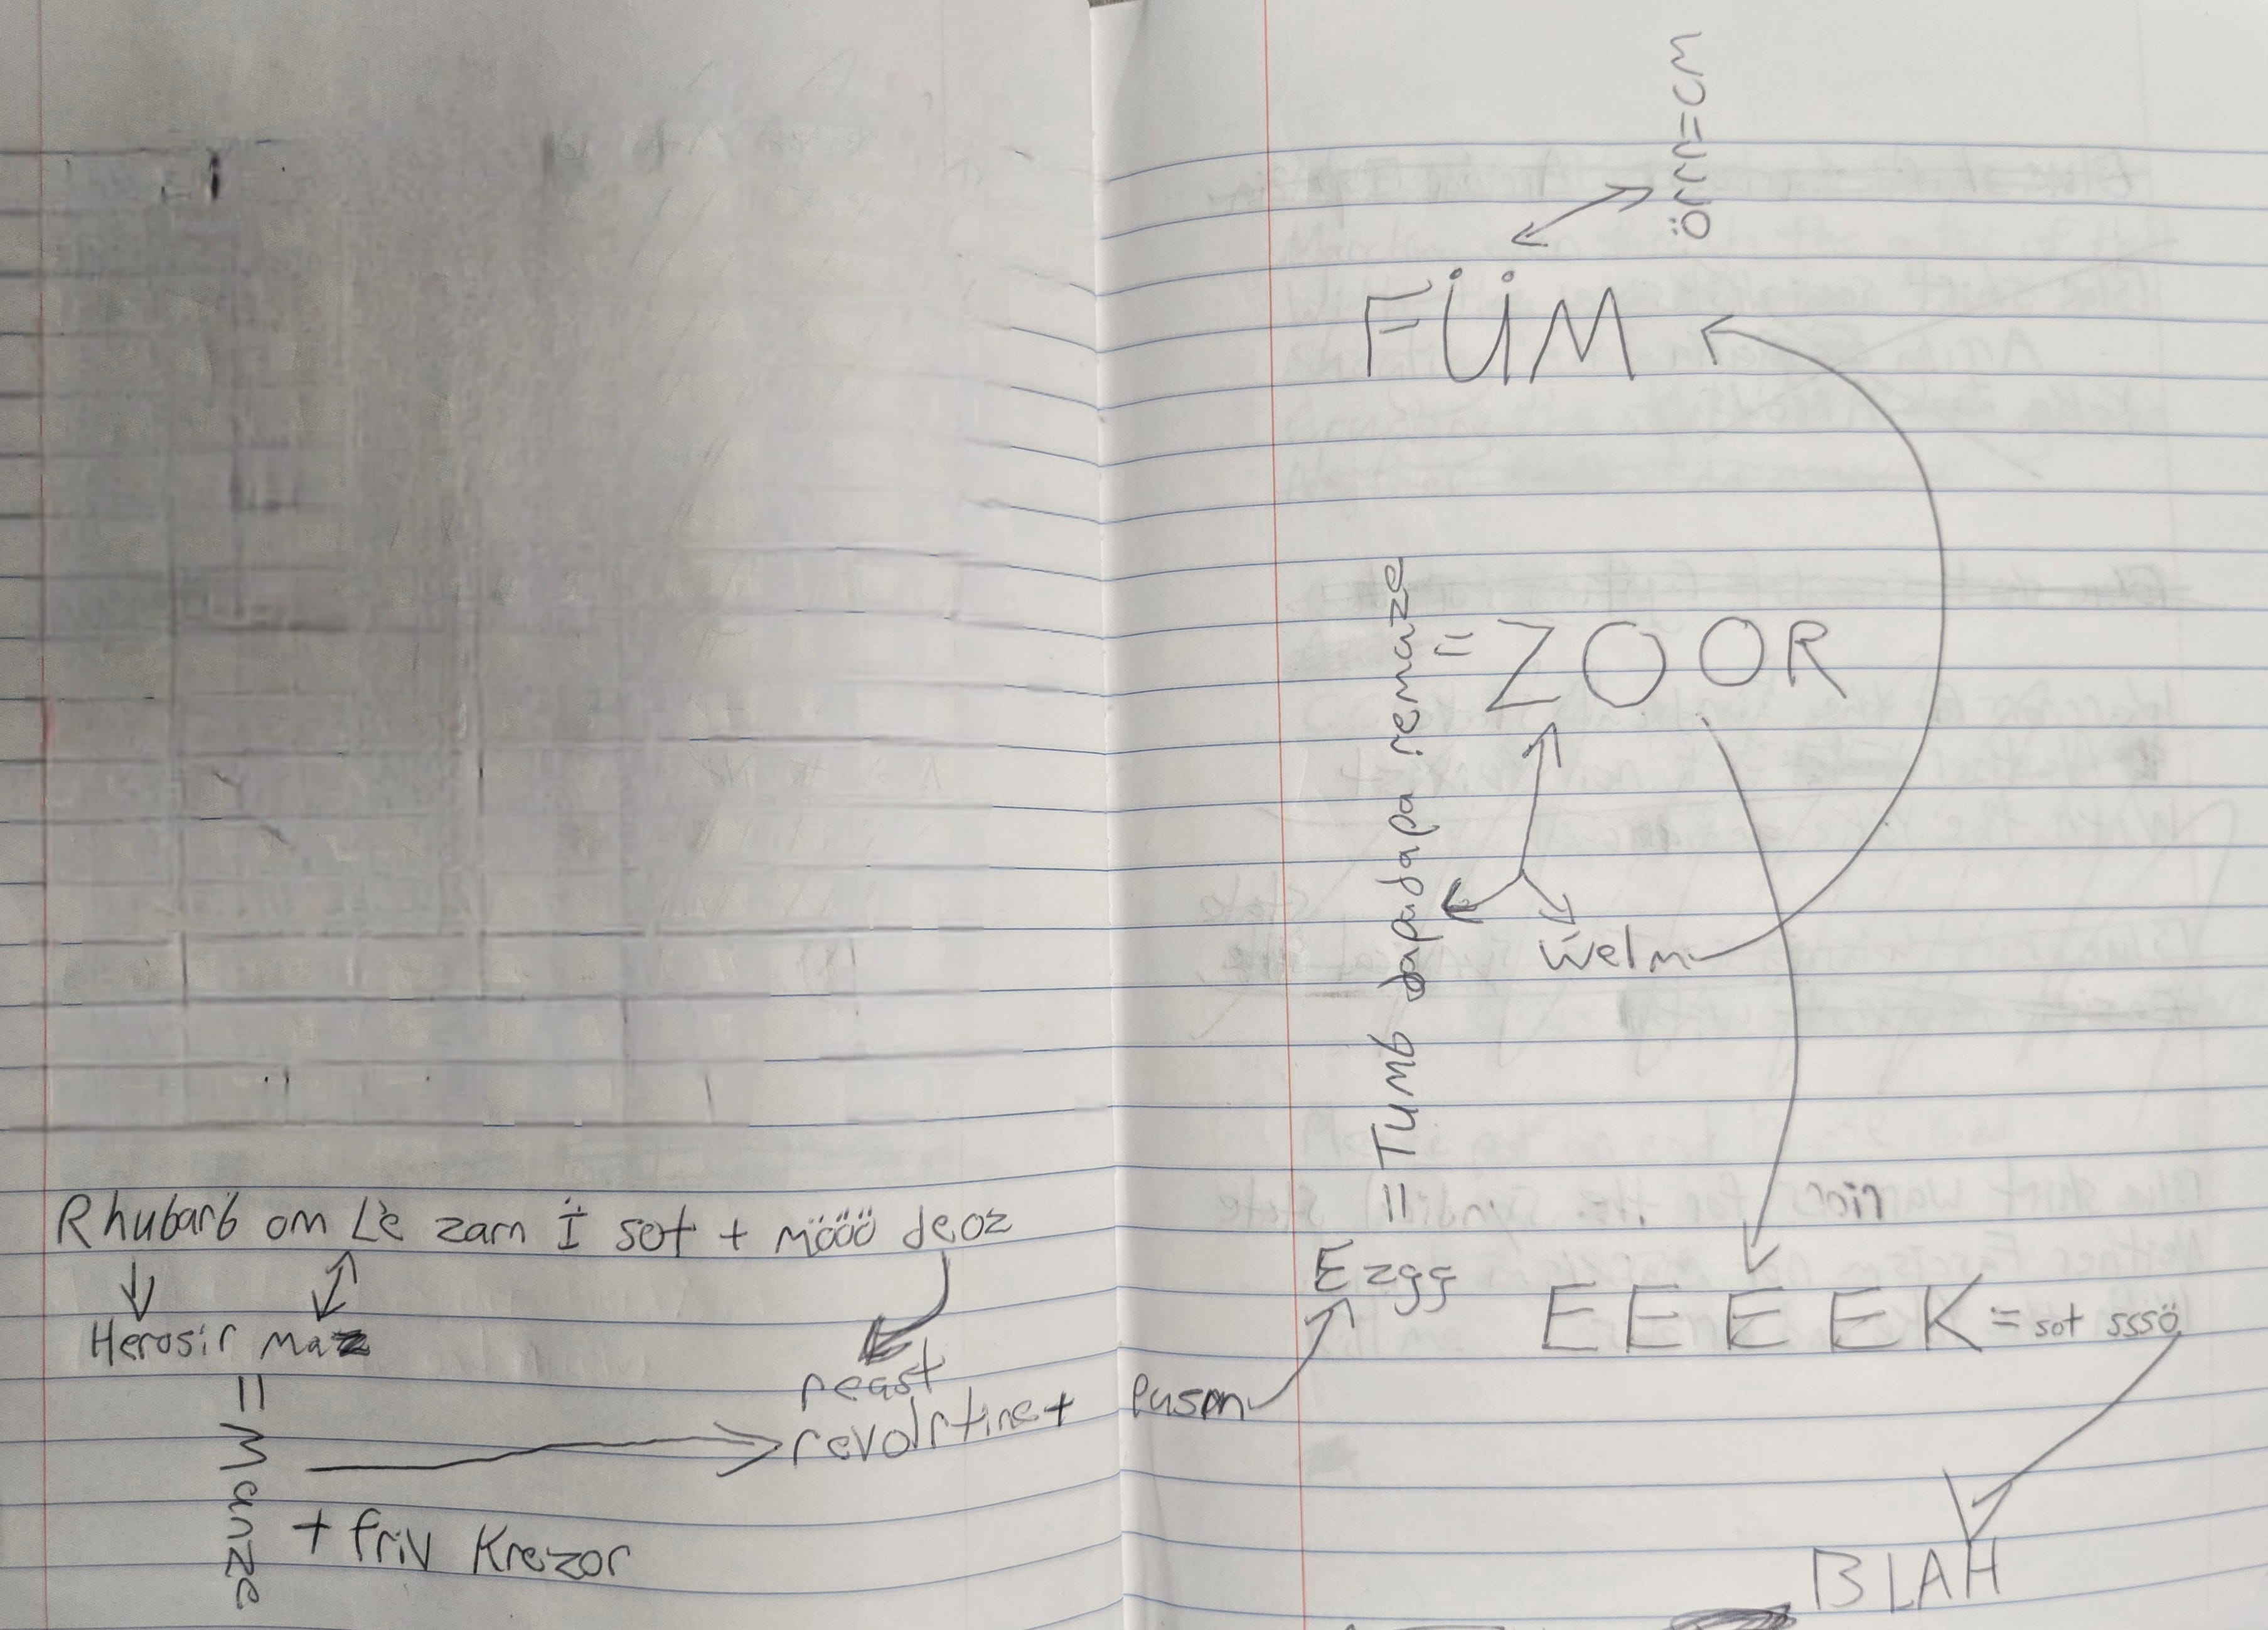 Rhubarb om Lè zam İ sot + möööö deoz
Herosir maz
= Manze
+ friv Krezor
reast
revolrtine +
örrr=cm
FÜM
= ZOOR
=Tumb dapadapa remaze
Welm
Ezgg
Pusm
EEEEK = sot sssö
BLAH